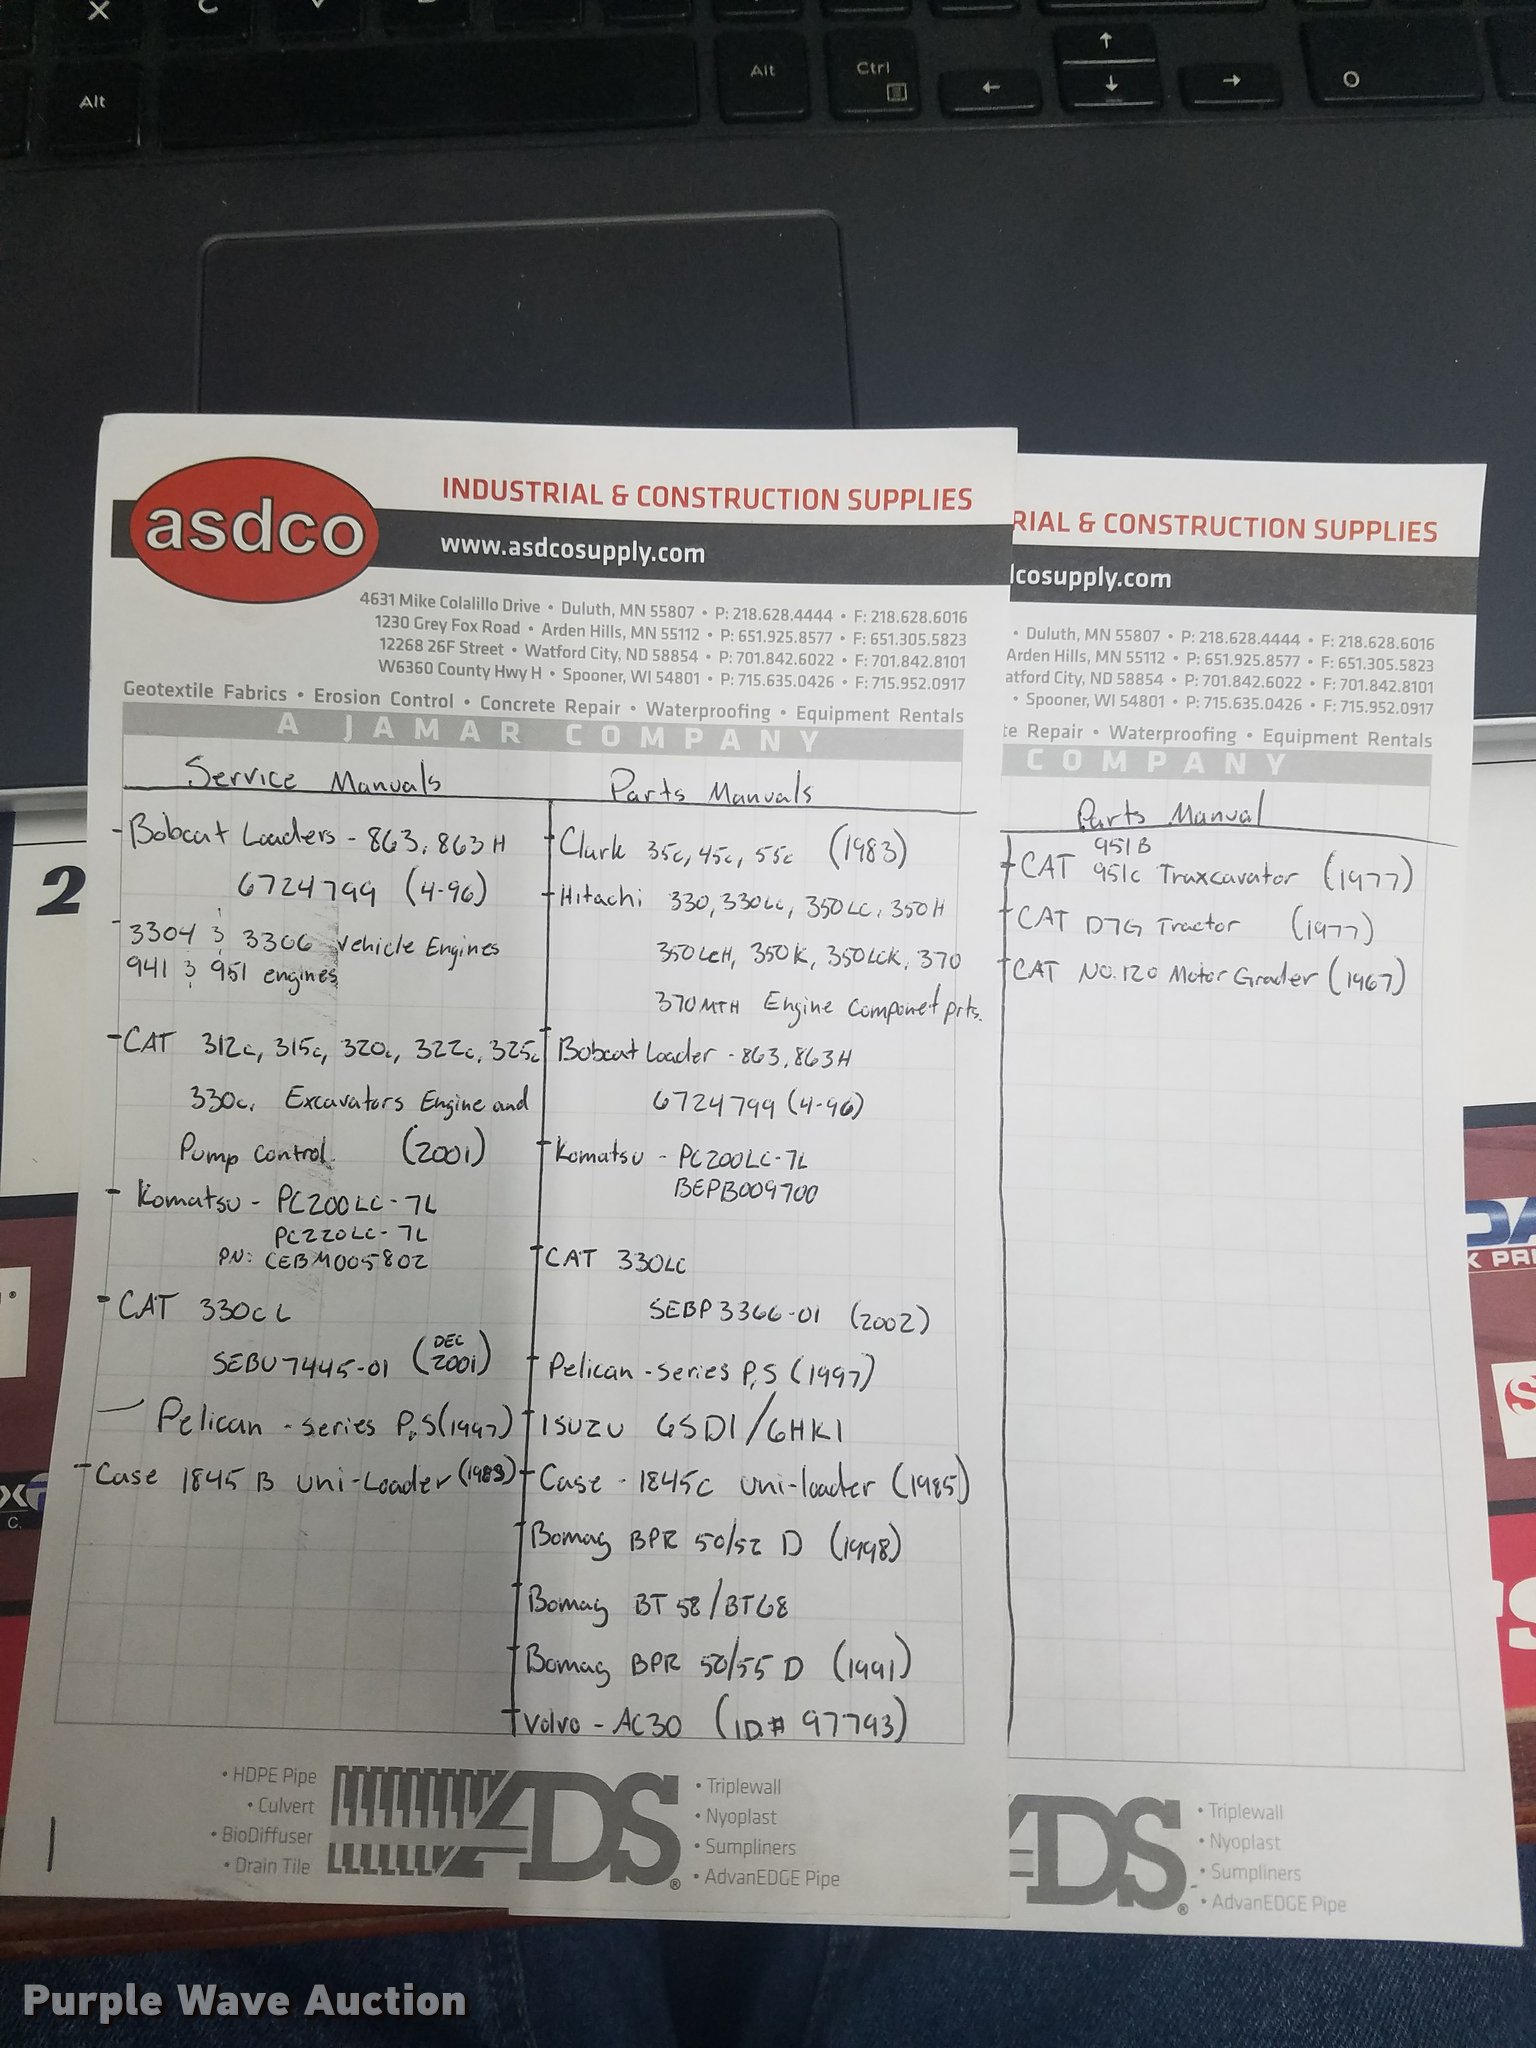 X C V
Alt Alt Ctrl ← ↑ ↓ → 0
asdco
INDUSTRIAL & CONSTRUCTION SUPPLIES
www.asdcosupply.com
4631 Mike Colalillo Drive • Duluth, MN 55807 • P: 218.628.4444 • F: 218.628.6016
1230 Grey Fox Road • Arden Hills, MN 55112 • P: 651.925.8577 • F: 651.305.5823
12268 26F Street • Watford City, ND 58854 • P: 701.842.6022 • F: 701.842.8101
W6360 County Hwy H • Spooner, WI 54801 • P: 715.635.0426 • F: 715.952.0917
Geotextile Fabrics • Erosion Control • Concrete Repair • Waterproofing • Equipment Rentals
A JAMAR COMPANY
Service Manuals
- Bobcat Loaders - 863, 863H
6724799 (4-96)
- 3304 & 3306 Vehicle Engines
941 & 951 engines
- CAT 312c, 315c, 320c, 322c, 325c
330c. Excavators Engine and
Pump Control. (2001)
- Komatsu - PC200LC-7L
PC220LC-7L
PN: CEBM005802
- CAT 330CL
SEBU7445-01 (DEC 2001)
- Pelican - series P,S (1997)
- Case 1845B uni-Loader (1983)
Parts Manuals
- Clark 35c, 45c, 55c (1983)
- Hitachi 330, 330LC, 350LC, 350H
350LCH, 350K, 350LCK, 370
370MTH Engine Componet prts.
- Bobcat Loader - 863, 863H
6724799 (4-96)
- Komatsu - PC200LC-7L
BEPB009700
- CAT 330LC
SEBP3366-01 (2002)
- Pelican - series P,S (1997)
- ISUZU 6SD1/6HK1
- Case - 1845C uni-loader (1985)
- Bomag BPR 50/52 D (1998)
- Bomag BT58/BT68
- Bomag BPR 50/55 D (1991)
- Volvo - AC30 (ID.# 97793)
• HDPE Pipe
• Culvert
• BioDiffuser
• Drain Tile
ADS®
• Triplewall
• Nyoplast
• Sumpliners
• AdvanEDGE Pipe
RIAL & CONSTRUCTION SUPPLIES
dcosupply.com
• Duluth, MN 55807 • P: 218.628.4444 • F: 218.628.6016
Arden Hills, MN 55112 • P: 651.925.8577 • F: 651.305.5823
atford City, ND 58854 • P: 701.842.6022 • F: 701.842.8101
• Spooner, WI 54801 • P: 715.635.0426 • F: 715.952.0917
te Repair • Waterproofing • Equipment Rentals
COMPANY
Parts Manual
951B
- CAT 951c Traxcavator (1977)
- CAT D7G Tractor (1977)
- CAT NO.120 Motor Grader (1967)
ADS®
• Triplewall
• Nyoplast
• Sumpliners
• AdvanEDGE Pipe
2
Purple Wave Auction